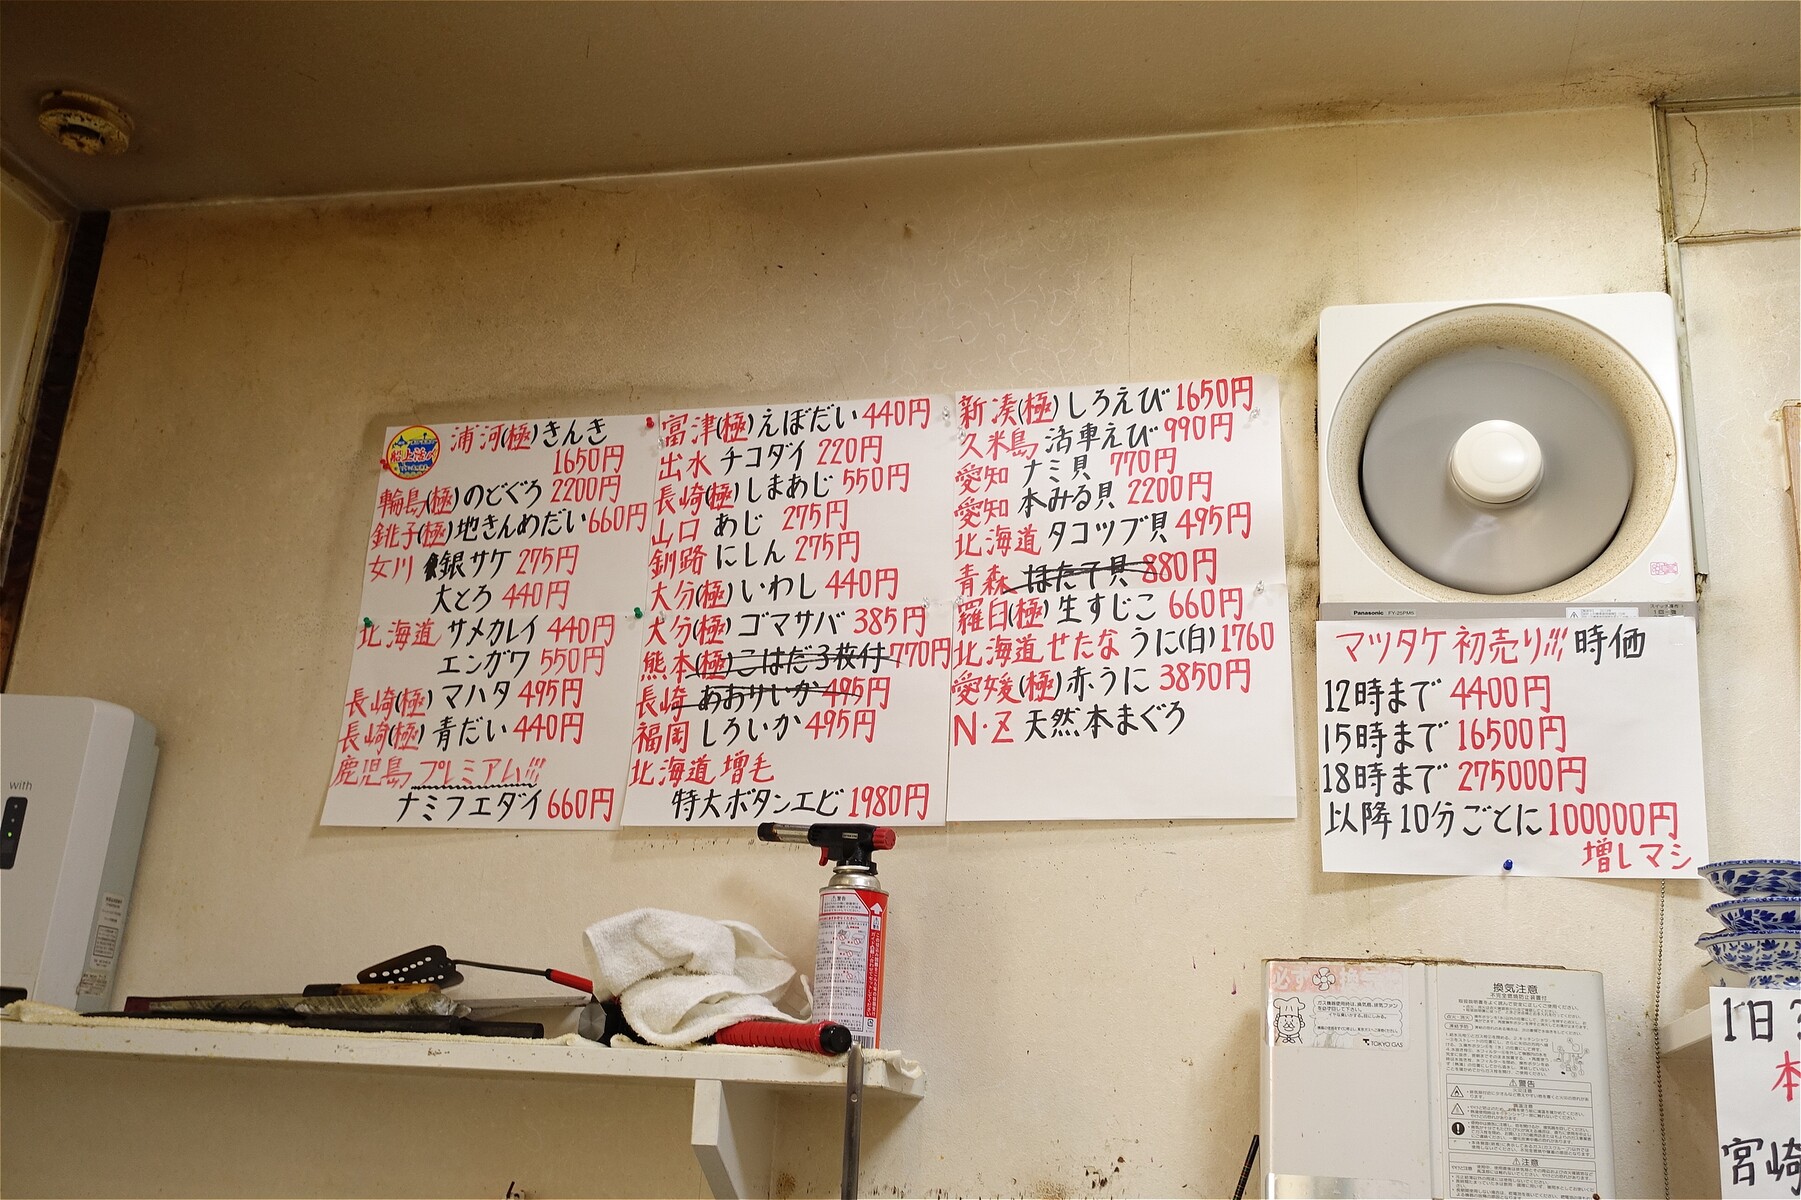 船上活〆
浦河(極)きんき
1650円
輪島(極)のどぐろ 2200円
銚子(極)地きんめだい 660円
女川 銀サケ 275円
大とろ 440円
北海道 サメカレイ 440円
エンガワ 550円
長崎(極) マハタ 495円
長崎(極) 青だい 440円
鹿児島 プレミアム!!!
ナミフエダイ 660円
富津(極)えぼだい 440円
出水 チコダイ 220円
長崎(極)しまあじ 550円
山口 あじ 275円
釧路 にしん 275円
大分(極)いわし 440円
大分(極)ゴマサバ 385円
熊本(極)こはだ3枚付 770円
長崎 あおりいか 495円
福岡 しろいか 495円
北海道 増毛
特大ボタンエビ 1980円
新湊(極)しろえび 1650円
久米島 活車えび 990円
愛知 ナミ貝 770円
愛知 本みる貝 2200円
北海道 タコツブ貝 495円
青森 ほたて貝 880円
羅臼(極) 生すじこ 660円
北海道せたな うに(白) 1760
愛媛(極)赤うに 3850円
N・Z 天然本まぐろ
Panasonic FY-25PM5
マツタケ 初売り!!! 時価
12時まで 4400円
15時まで 16500円
18時まで 275000円
以降10分ごとに 100000円
増しマシ
with
警告
必ず換
ガス機器使用時は、換気扇、排気ファン
を必ず回して下さい。
TOKYO GAS
換気注意
不完全燃焼防止装置付
警告
注意
1日
本
宮崎